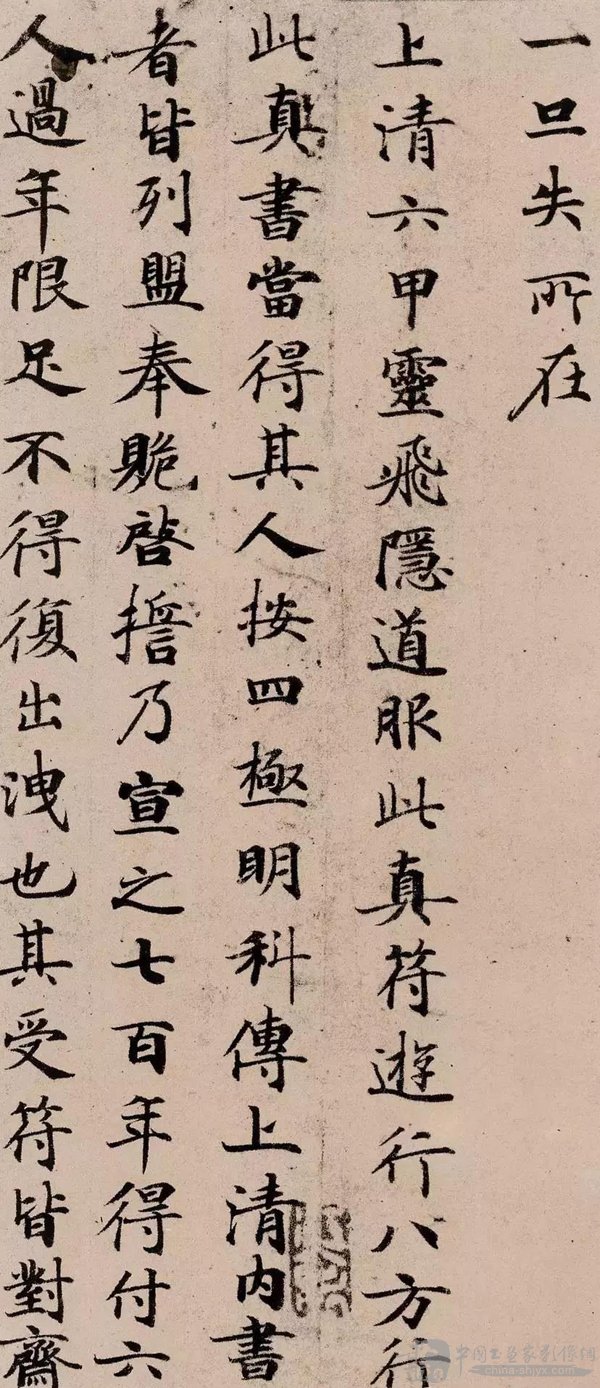 一旦失所在
上清六甲靈飛隱道服此真符遊行八方行
此真書當得其人按四極明科傳上清内書
者皆列盟奉贶啓誓乃宣之七百年得付六
人過年限足不得復出洩也其受符皆對齋
china-shyx.com